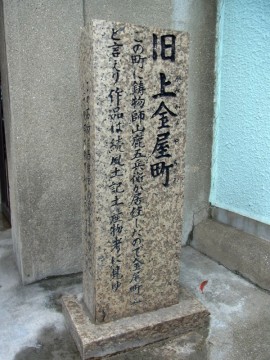 旧上金屋町
この町に鋳物師山鹿五兵衛が居住したので金屋町
と言えり作品は続風土記土産物考に見ゆ